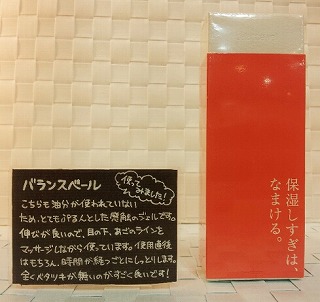 使って
みました！
バランスベール
こちらも油分が使われていない
ため、とてもぷるんとした感触のジェルです。
伸びが良いので、目の下、あごのラインを
マッサージしながら使っています。使用直後
はもちろん、時間が経っごとにしっとりします。
全くベタツキが無いのがすごく良いです！
保湿しすぎは、
なまける。